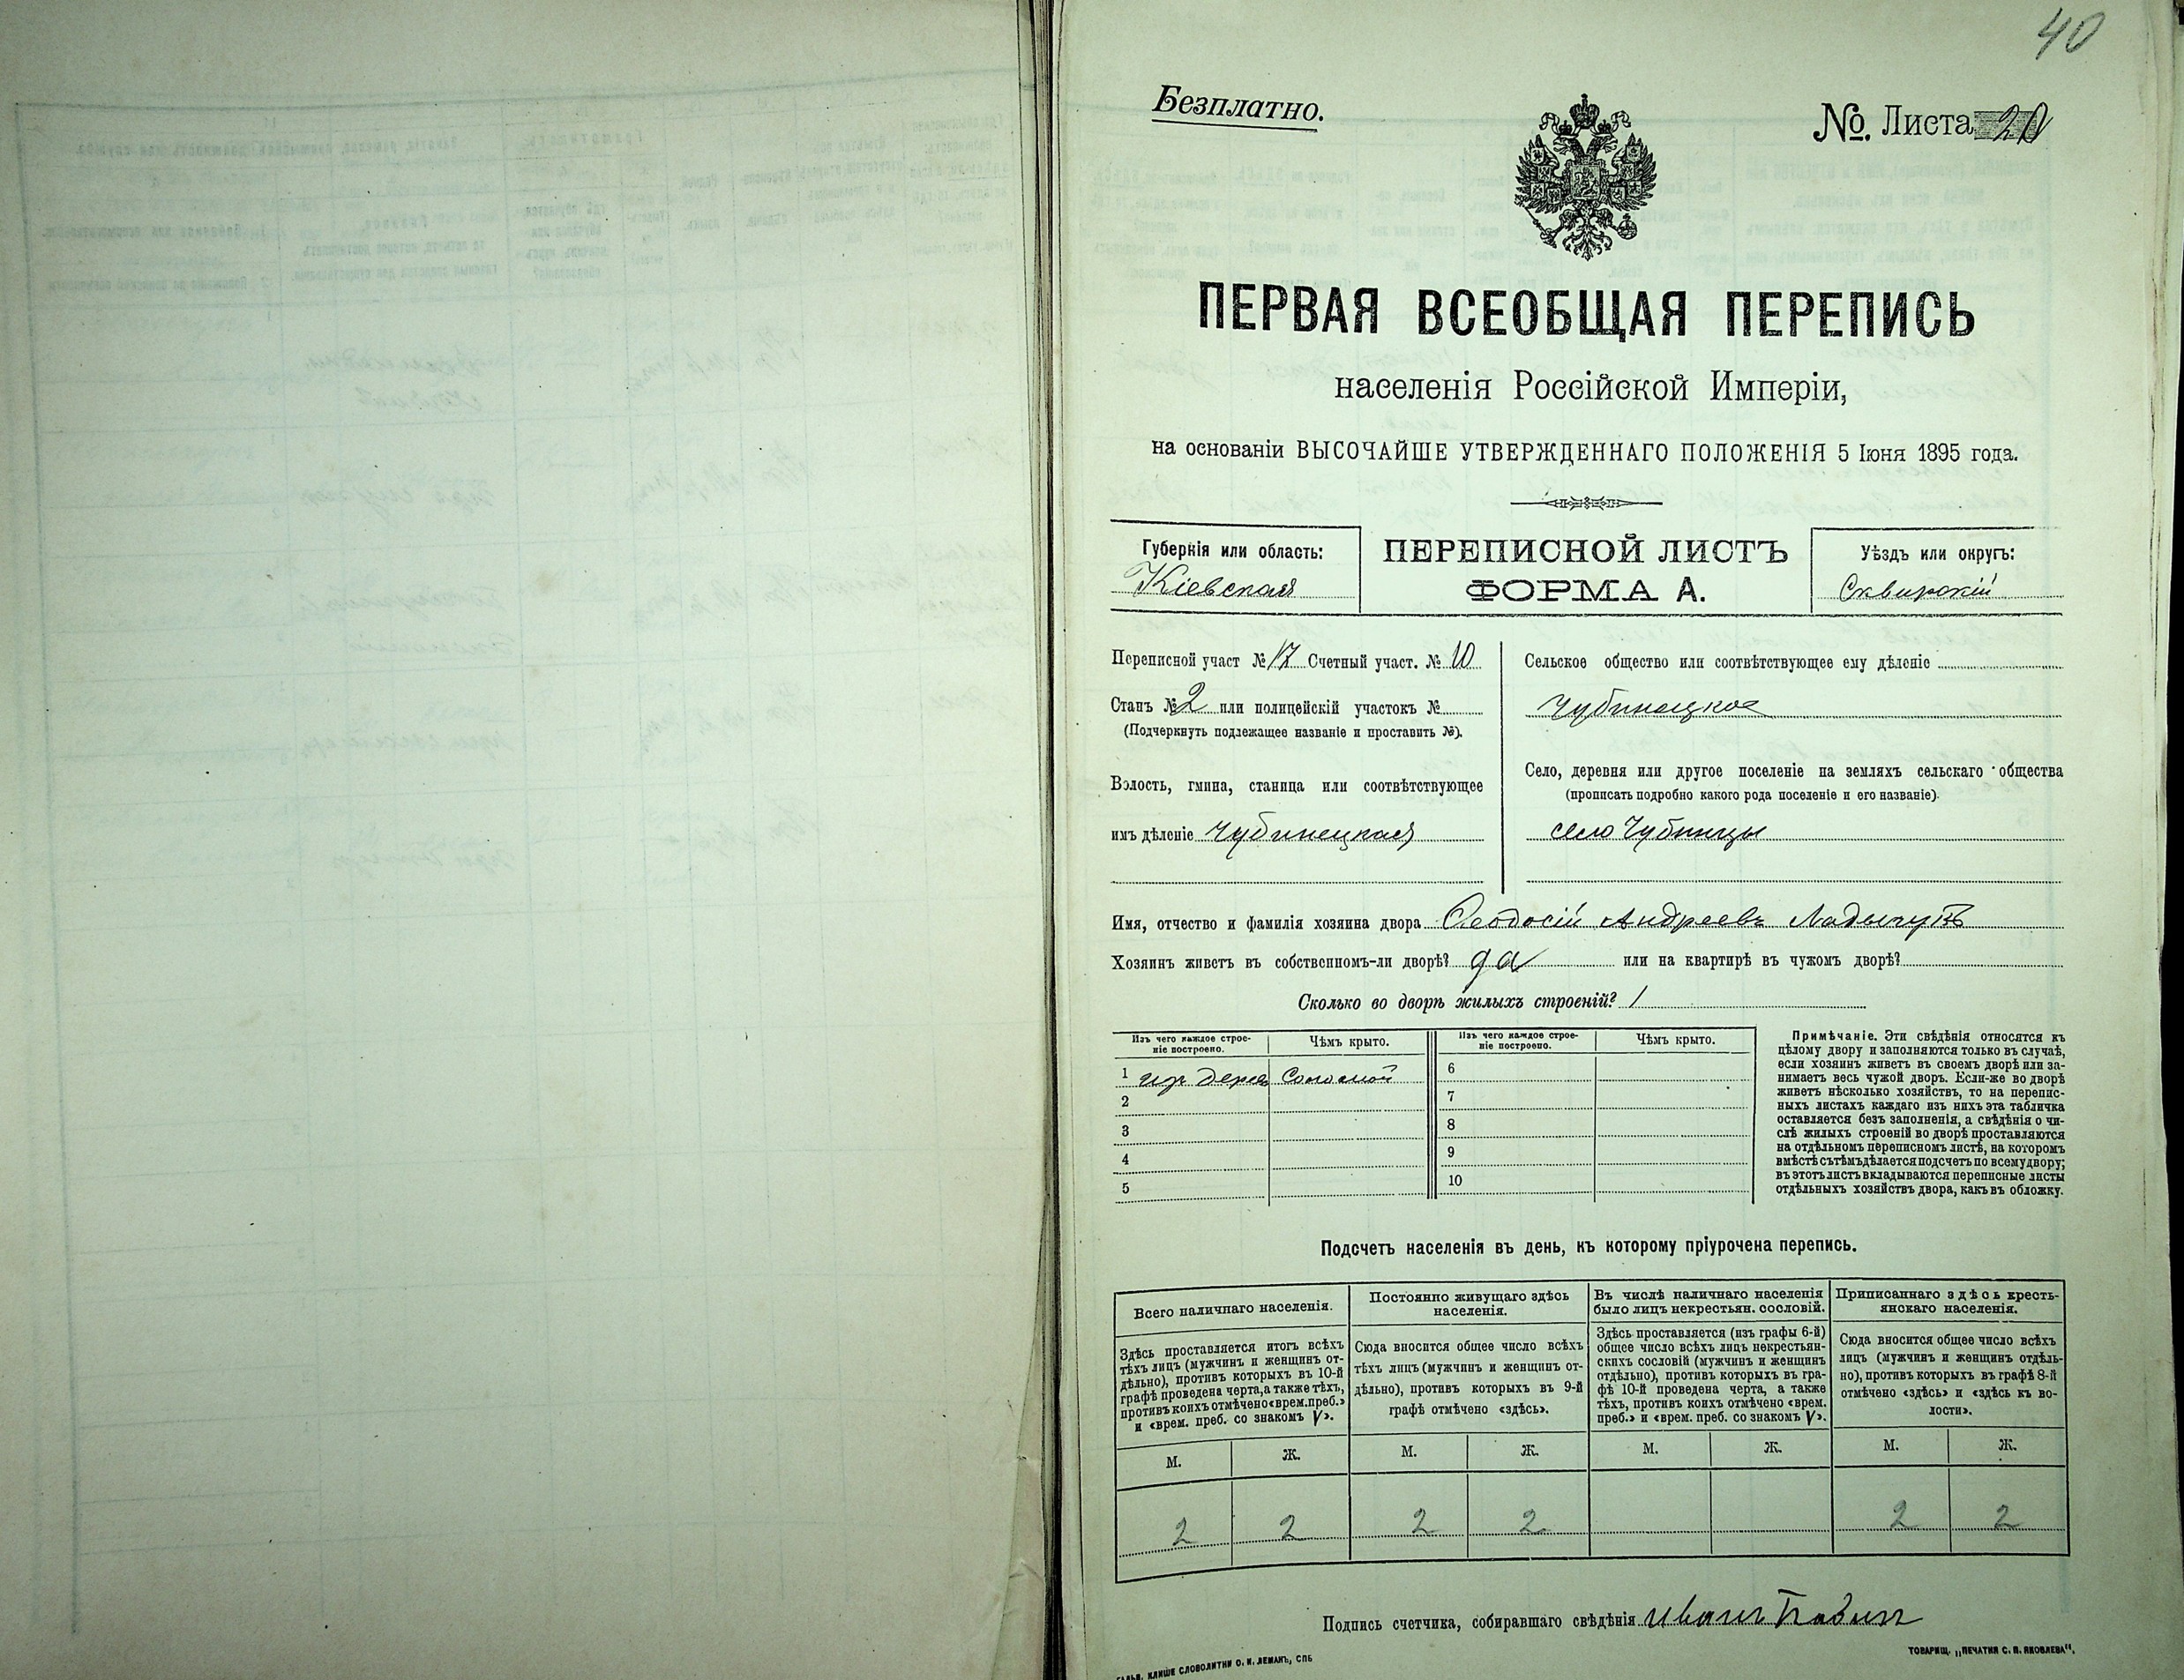 40
Безплатно.
№ Листа 20
ПЕРВАЯ ВСЕОБЩАЯ ПЕРЕПИСЬ
населенія Россійской Имперіи,
на основаніи ВЫСОЧАЙШЕ УТВЕРЖДЕННАГО ПОЛОЖЕНІЯ 5 Іюня 1895 года.
Губернія или область:
Кіевская
ПЕРЕПИСНОЙ ЛИСТЪ
ФОРМА А.
Уѣздъ или округъ:
Сквирскій
Переписной участ № 17 Счетный участ. № 10
Станъ № 2 или полицейскій участокъ №
(Подчеркнуть подлежащее названіе и проставить №).
Волость, гмина, станица или соотвѣтствующее
имъ дѣленіе Чубинецкая
Сельское общество или соотвѣтствующее ему дѣленіе
Чубинецкое
Село, деревня или другое поселеніе на земляхъ сельскаго общества
(прописать подробно какого рода поселеніе и его названіе).
село Чубинцы
Имя, отчество и фамилія хозяина двора Феодосій Андреевъ
Хозяинъ живетъ въ собственномъ-ли дворѣ? да или на квартирѣ въ чужомъ дворѣ?
Сколько во дворѣ жилыхъ строеній? 1
Изъ чего каждое строе-
ніе построено.
Чѣмъ крыто.
Изъ чего каждое строе-
ніе построено.
Чѣмъ крыто.
1 изъ дерев Соломой
2
3
4
5
6
7
8
9
10
Примѣчаніе. Эти свѣдѣнія относятся къ
цѣлому двору и заполняются только въ случаѣ,
если хозяинъ живетъ въ своемъ дворѣ или за-
нимаетъ весь чужой дворъ. Если-же во дворѣ
живетъ нѣсколько хозяйствъ, то на перепис-
ныхъ листахъ каждаго изъ нихъ эта табличка
оставляется безъ заполненія, а свѣдѣнія о чи-
слѣ жилыхъ строеній во дворѣ проставляются
на отдѣльномъ переписномъ листѣ, на которомъ
вмѣстѣ съ тѣмъ дѣлается подсчетъ по всему двору;
въ этотъ листъ вкладываются переписные листы
отдѣльныхъ хозяйствъ двора, какъ въ обложку.
Подсчетъ населенія въ день, къ которому пріурочена перепись.
Всего наличнаго населенія.
Здѣсь проставляется итогъ всѣхъ
тѣхъ лицъ (мужчинъ и женщинъ от-
дѣльно), противъ которыхъ въ 10-й
графѣ проведена черта, а также тѣхъ,
противъ коихъ отмѣчено «врем. преб.»
и «врем. преб. со знакомъ V».
Постоянно живущаго здѣсь
населенія.
Сюда вносится общее число всѣхъ
тѣхъ лицъ (мужчинъ и женщинъ от-
дѣльно), противъ которыхъ въ 9-й
графѣ отмѣчено «здѣсь».
Въ числѣ наличнаго населенія
было лицъ некрестьян. сословій.
Здѣсь проставляется (изъ графы 6-й)
общее число всѣхъ лицъ некрестьян-
скихъ сословій (мужчинъ и женщинъ
отдѣльно), противъ которыхъ въ гра-
фѣ 10-й проведена черта, а также
тѣхъ, противъ коихъ отмѣчено «врем.
преб.» и «врем. преб. со знакомъ V».
Приписаннаго здѣсь кресть-
янскаго населенія.
Сюда вносится общее число всѣхъ
лицъ (мужчинъ и женщинъ отдѣль-
но), противъ которыхъ въ графѣ 8-й
отмѣчено «здѣсь» и «здѣсь къ во-
лости».
М. Ж. М. Ж. М. Ж. М. Ж.
2 2 2 2 2 2
Подпись счетчика, собиравшаго свѣдѣнія Иванъ
КЛИШЕ СЛОВОЛИТНИ О. И. ЛЕМАНЪ, СПБ
ТОВАРИЩ. „ПЕЧАТНЯ С. П. ЯКОВЛЕВА“.